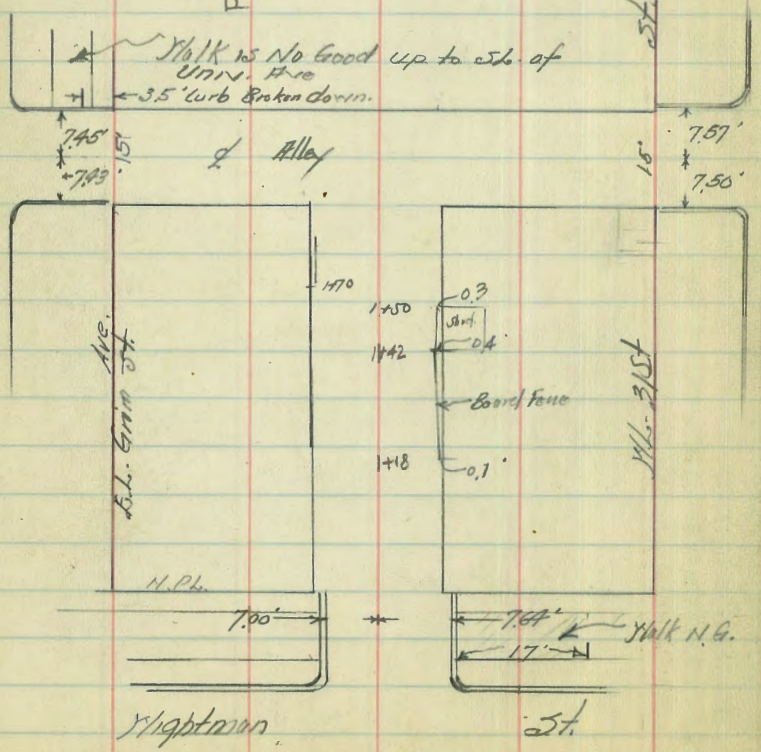 St.
Walk is No Good up to SL. of
Univ. Ave
3.5' Curb Broken down.
7.45'
7.43
15'
℄ Alley
15'
7.57'
7.50'
1+70
1+50
0.3
Shed
1+42
0.4
Board Fence
1+18
0.1'
E.L. Grim St. Ave.
W.L. 31st
N.P.L.
7.00'
7.64'
Walk N.G.
17'
Wightman St.